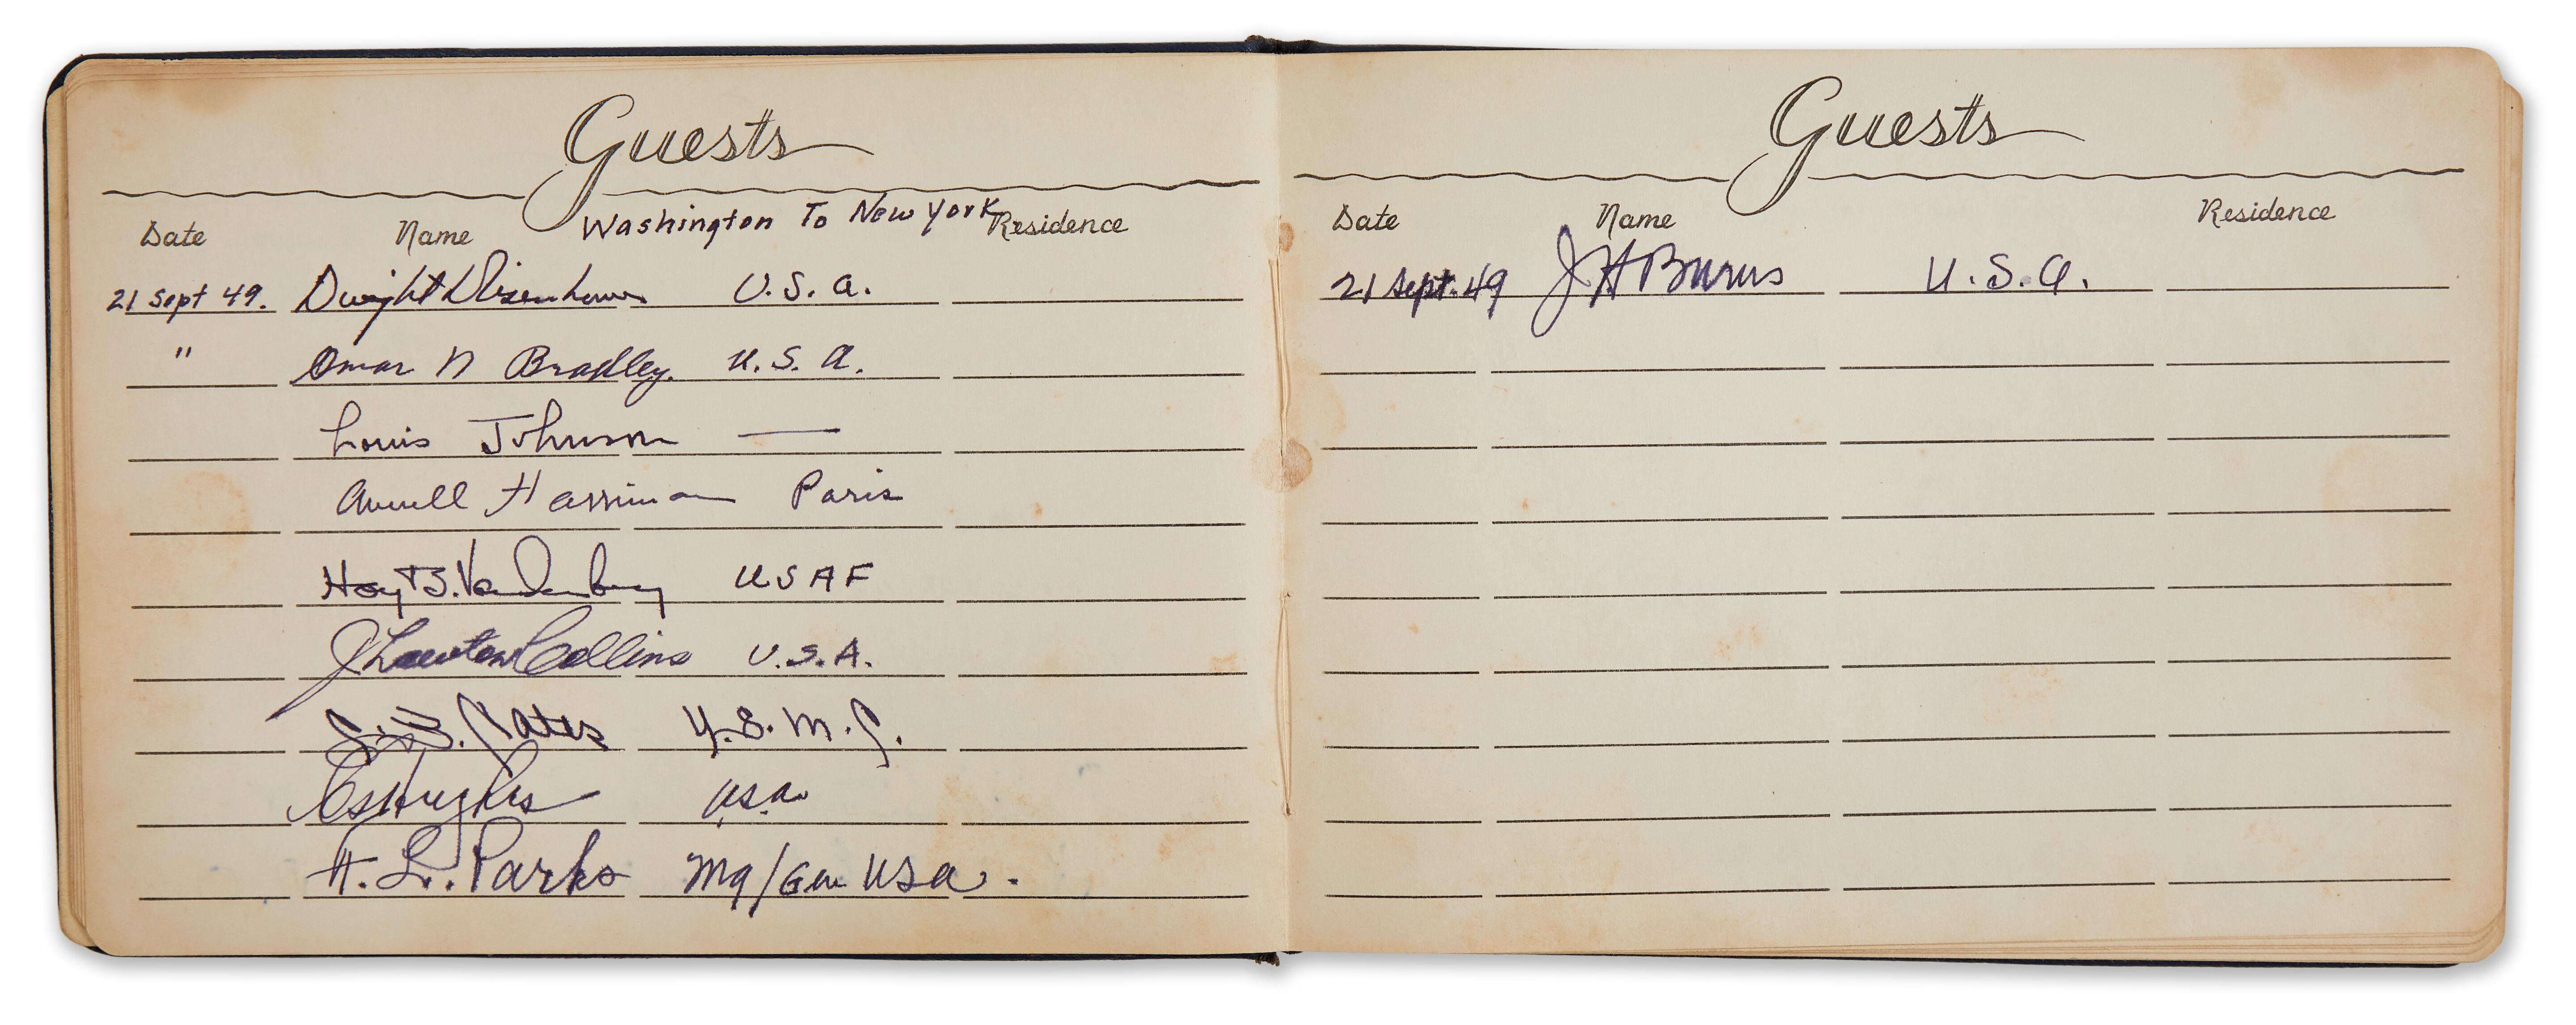 Guests
Washington To New York
Date Name Residence
21 Sept 49. Dwight D Eisenhower U.S.A.
" Omar N Bradley. U.S.A.
Louis Johnson —
Averell Harriman Paris
Hoyt S. Vandenberg USAF
J Lawton Collins U.S.A.
C. B. Cates U.S.M.C.
ES Hughes USA
F. L. Parks Maj/Gen USA.
Guests
Date Name Residence
21 Sept. 49 J H Burns U.S.A.